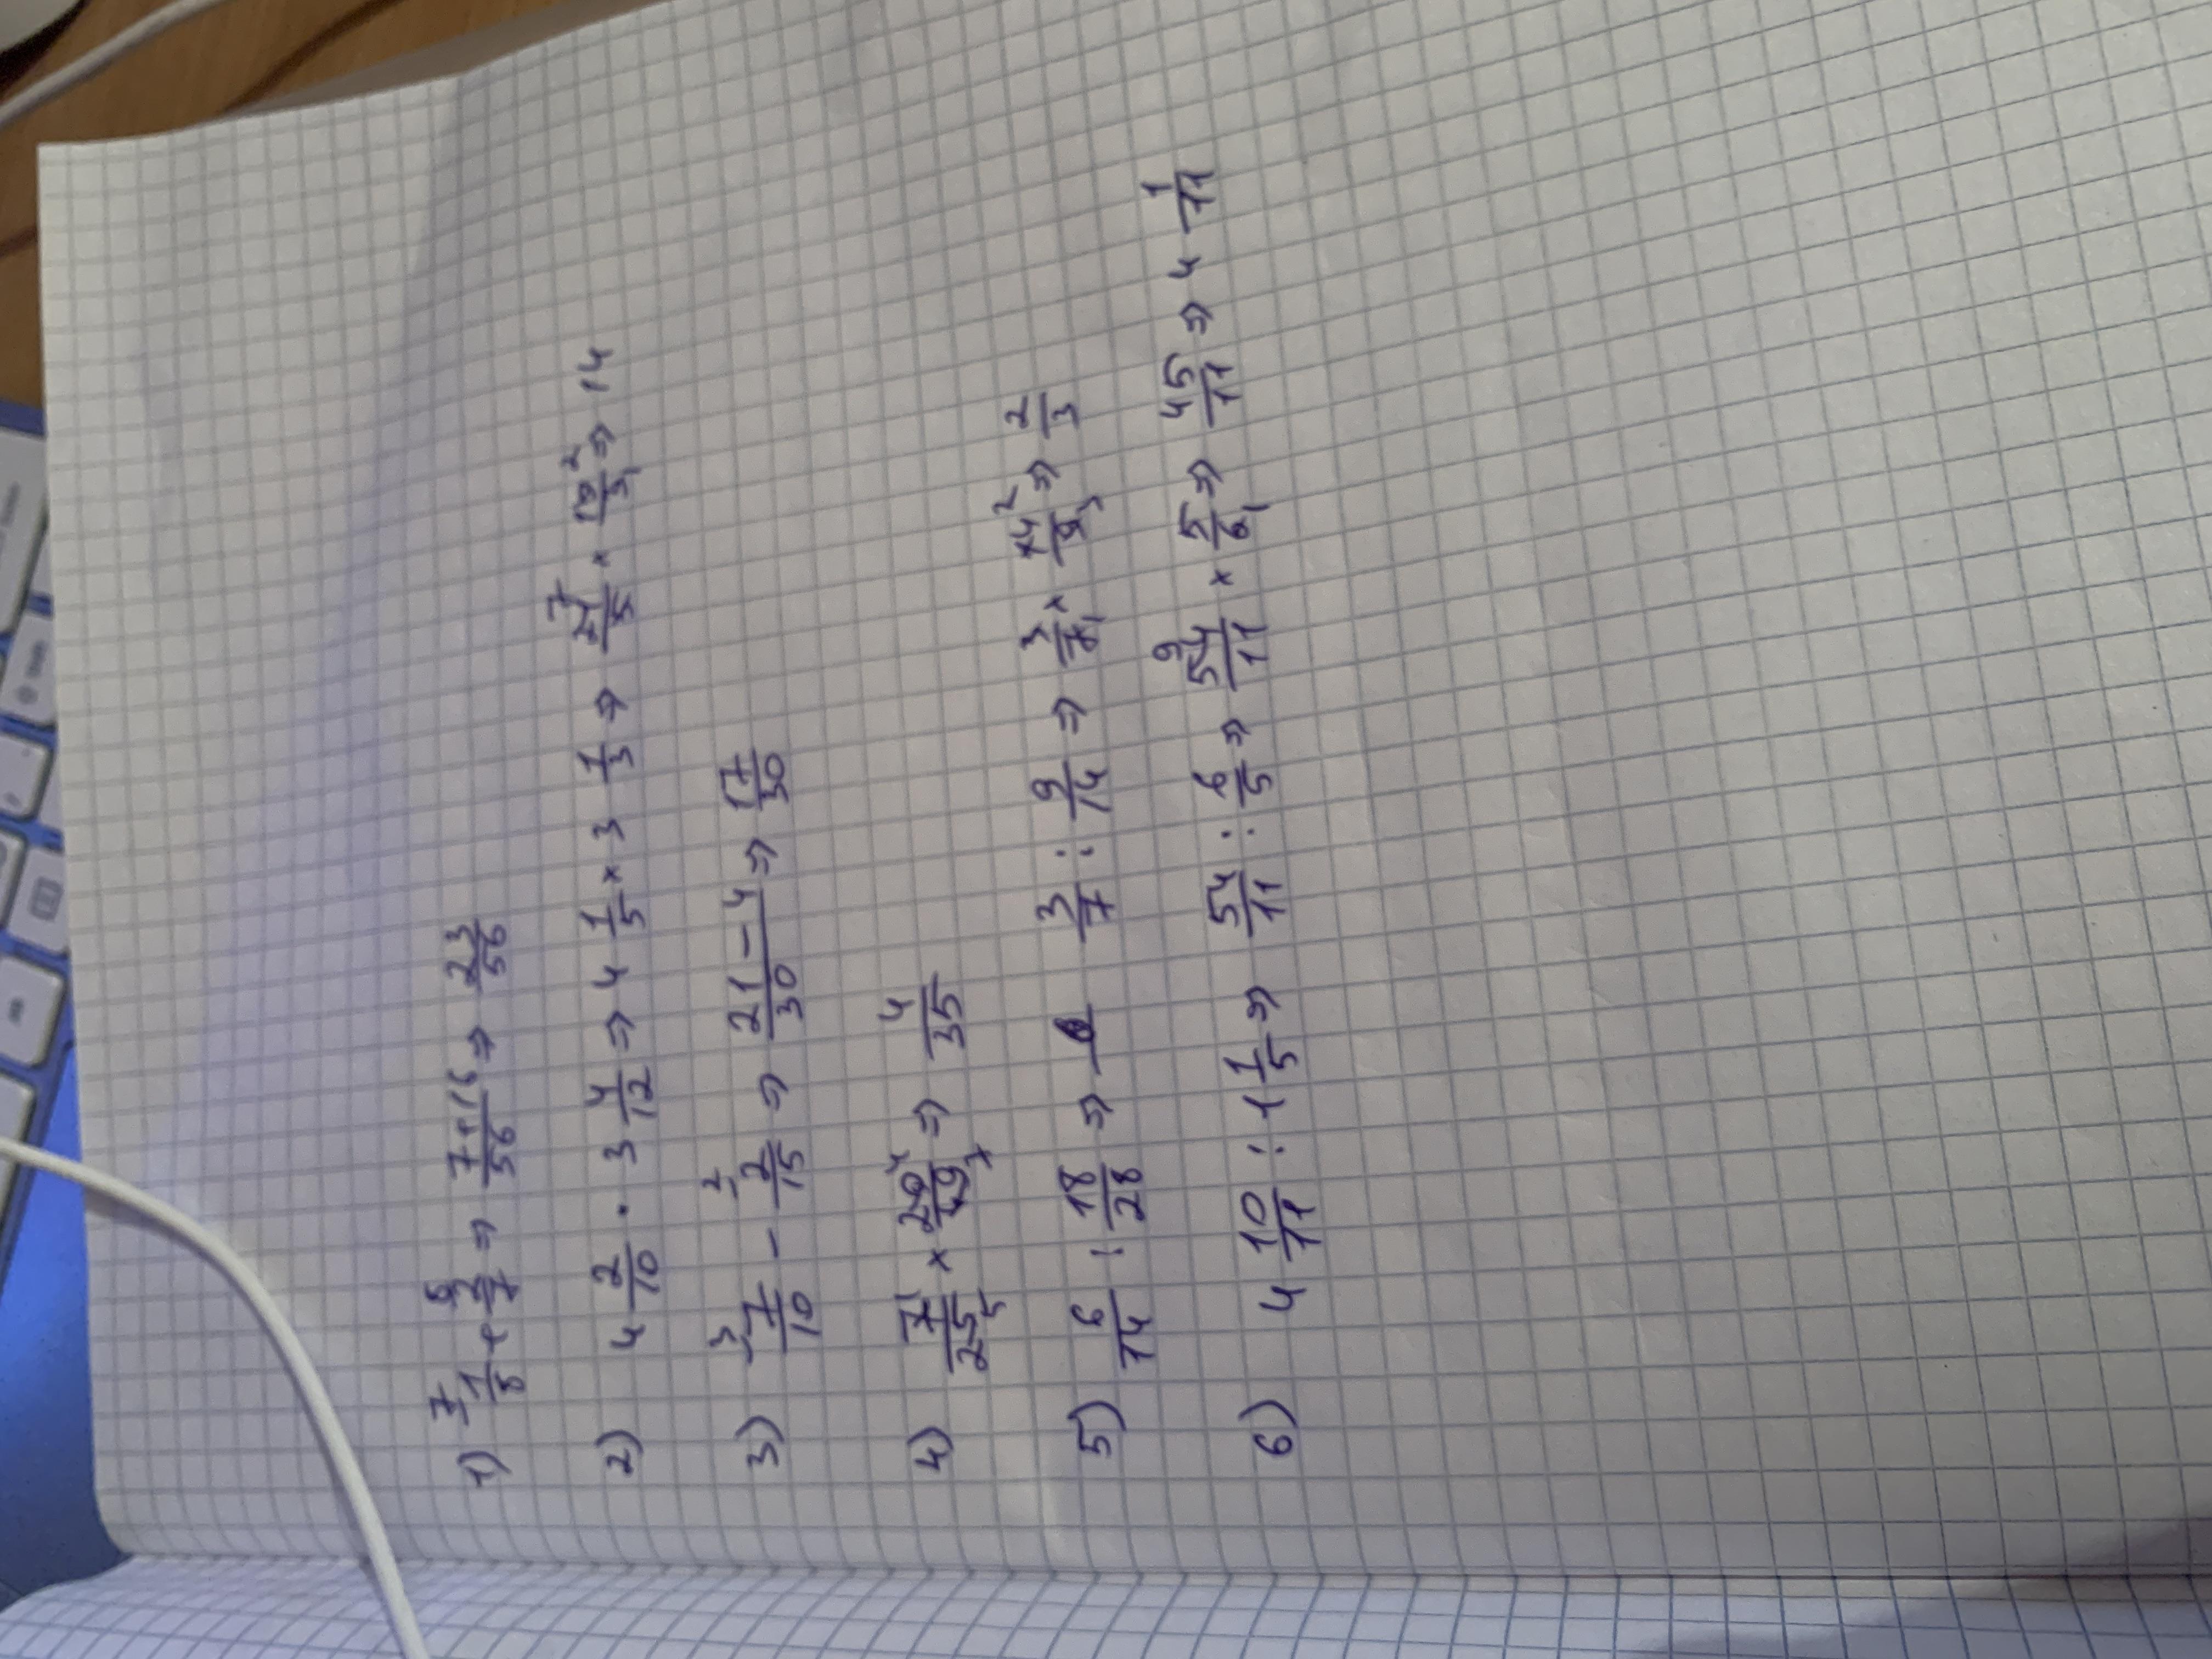 1) ⁷1/8 + ⁸2/7 ⇒ 7+16/56 ⇒ 23/56
2) 4 2/10 · 3 4/12 ⇒ 4 1/5 × 3 1/3 ⇒ 21⁷/5 × 10²/3₁ ⇒ 14
3) ³7/10 - ²2/15 ⇒ 21-4/30 ⇒ 17/30
4) 7¹/25₅ × 20⁴/49₇ ⇒ 4/35
5) 6/14 : 18/28 ⇒ 3/7 : 9/14 ⇒ 3/7₁ × 14²/9₃ ⇒ 2/3
6) 4 10/11 : 1 1/5 ⇒ 54/11 : 6/5 ⇒ 54⁹/11 × 5/6₁ ⇒ 45/11 ⇒ 4 1/11